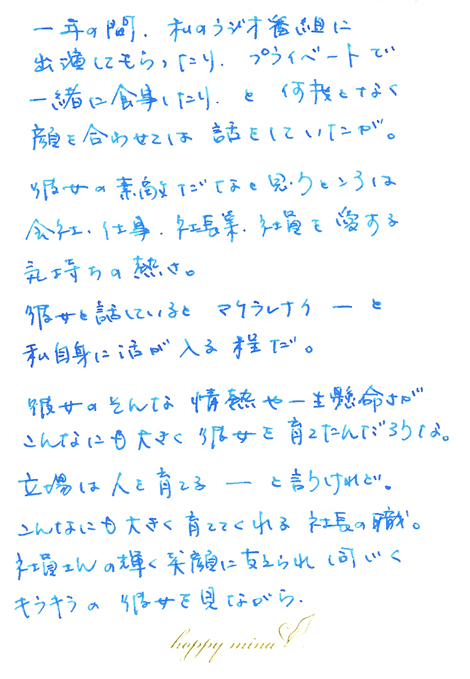 一年の間、私のラジオ番組に
出演してもらったり、プライベートで
一緒に食事したり、と 何度となく
顔を合わせては 話をしていたが。
彼女の素敵だなと思うところは
会社、仕事、社長業、社員を愛する
気持ちの熱さ。
彼女と話していると マケラレナイ ーと
私自身に活が入る程だ。
彼女のそんな 情熱や一生懸命さが
こんなにも大きく 彼女を育てたんだろうな。
立場は人を育てる ーと言うけれど。
こんなにも大きく育ててくれる 社長の職。
社員さんの輝く笑顔に支えられ
キラキラの 彼女を見ながら、
happy mina